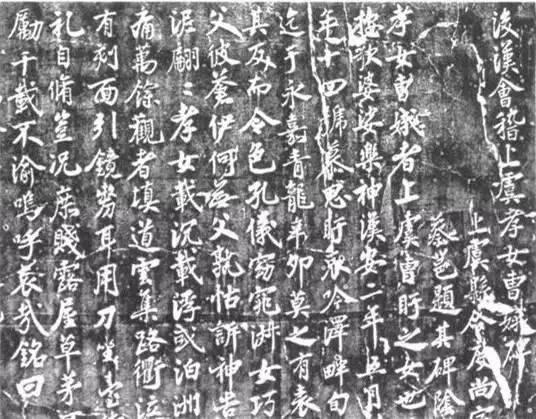 後漢會稽上虞孝女曹娥碑
上虞縣令度尚
蔡邕題其碑陰
孝女曹娥者上虞曹盱之女也
撫歌婆娑樂神漢安二年五月
年十四號慕思盱哀吟澤畔旬
迄于永嘉青龍辛卯莫之有表
其反而令色孔儀窈窕淑女巧
父彼蒼伊何無父孰怙訴神告
泥翩〻孝女載沉載浮或泊洲
痛萬餘觀者填道雲集路衢泣
有刻面引鏡剺耳用刀坐臺
礼自脩豈況庶賤露屋草茅
勵千載不渝嗚呼哀哉銘曰